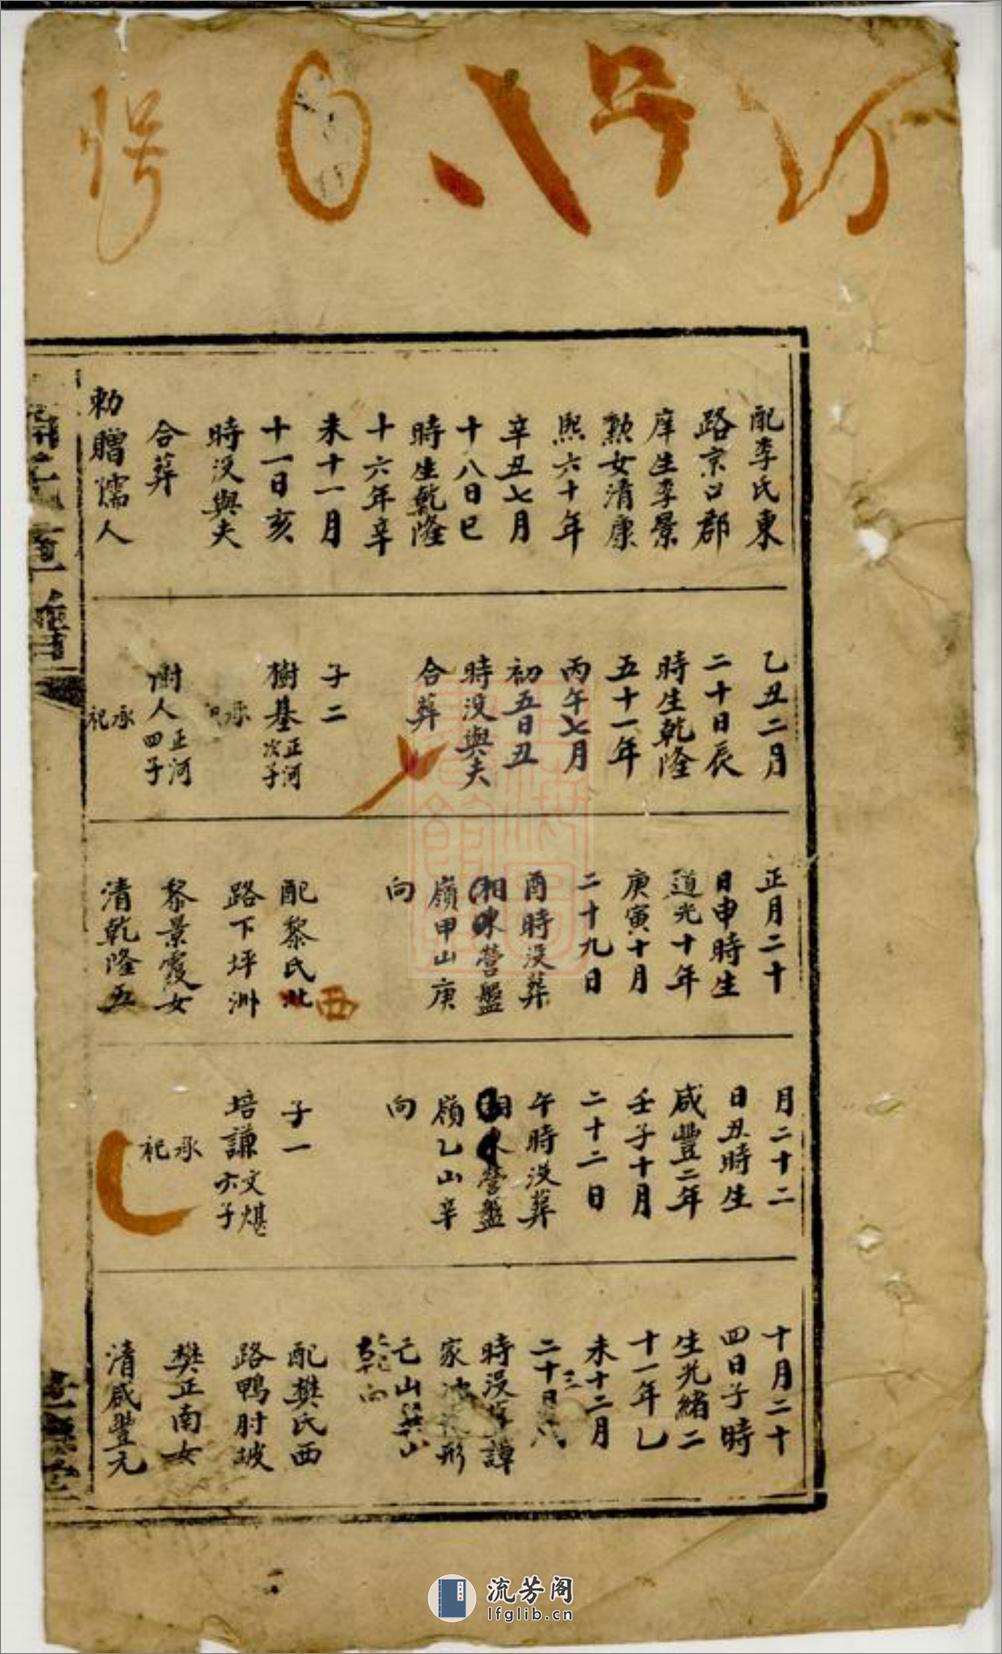 配李氏東
路京口郡
庠生李景
勲女清康
熙六十年
辛丑七月
十八日巳
時生乾隆
十六年辛
未十一月
十一日亥
時没與夫
合葬
勅贈孺人
乙丑二月
二十日辰
時生乾隆
五十一年
丙午七月
初五日丑
時没與夫
合葬
子二
樹基正河次子
承
樹人正河四子
承祀
正月二十
日申時生
道光十年
庚寅十月
二十九日
酉時没葬
湘東營盤
嶺甲山庚
向
配黎氏北
西
路下坪洲
黎景霞女
清乾隆五
月二十二
日丑時生
咸豐二年
壬子十月
二十二日
午時没葬
湘東營盤
嶺乙山辛
向
子一
培謙文堪六子
承祀
十月二十
四日子時
生光緒二
十一年乙
未十二月
二十日
時没葬譚
家 形
山 山
向
配樊氏西
路鴨肘坡
樊正南女
清咸豐元
流芳阁
lfglib.cn